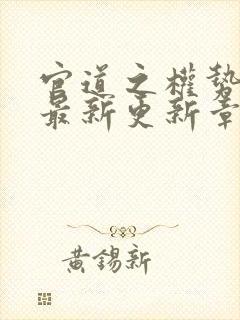 官道之權勢
最新更新章
黃錫新